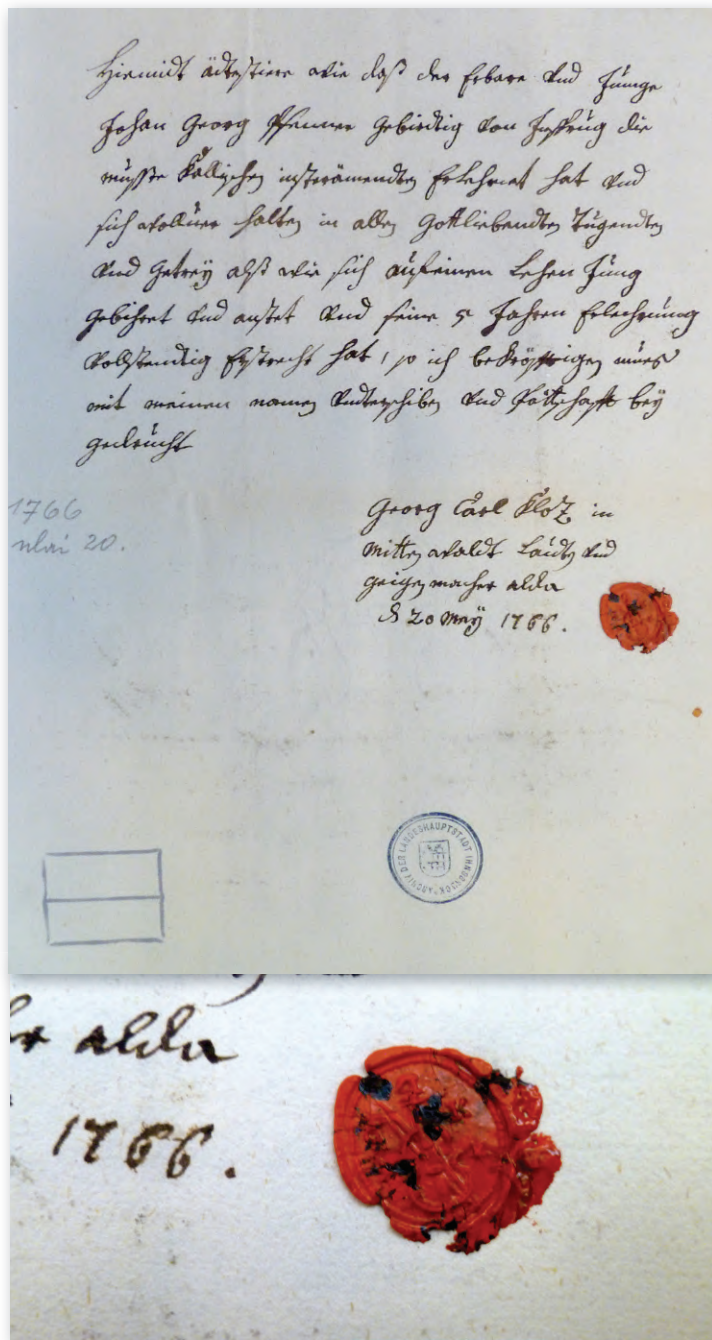 Hiemidt ädtestiere wie daß der Erbare und Junge
Johan Georg Psenner gebirdtig von Insprug die
musste Kallischen insterämendten Erlehrnet hat und
sich wollver halten in allen gottliebendten tugendten
und getrey alß wie sich auf einen Lehen Jung
gebihret und anstet und seine 5 Jahren Erlehrnung
vollstendtig Erstrecht hat, so ich bekröfftigen mues
mit meinen namen underschiben und Pöttschafft bey
gedrucht
1766
Mai 20.
Georg Carl Kloz in
mitten waldt Laudten und
geigen macher alda
d 20 May 1766.
ARCHIV DER LANDESHAUPTSTADT INNSBRUCK
alda
1766.